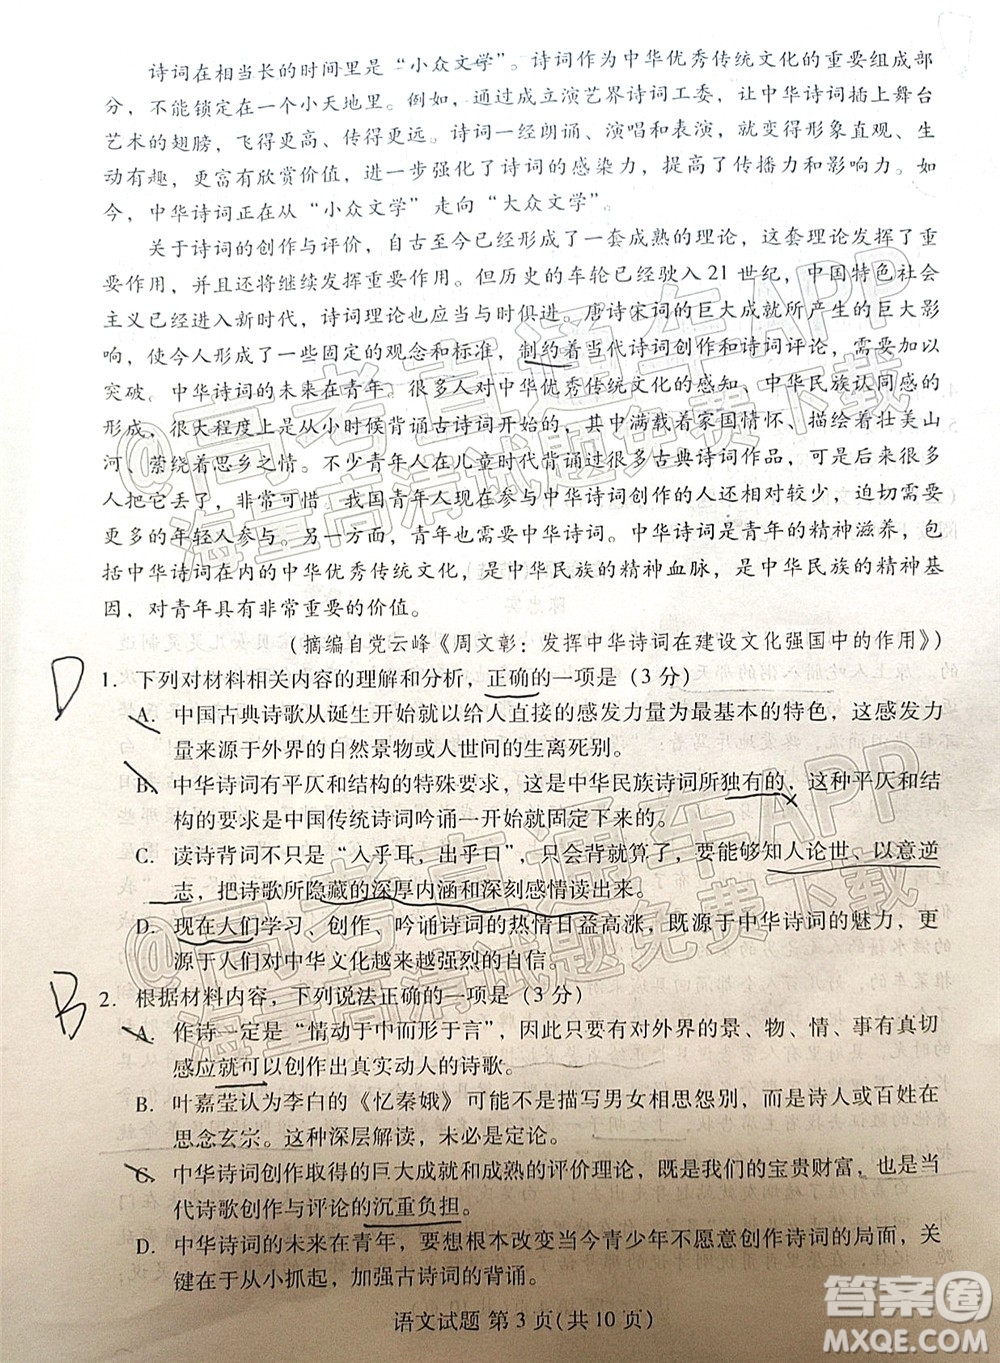 诗词在相当长的时间里是“小众文学”。诗词作为中华优秀传统文化的重要组成部
分，不能锁定在一个小天地里。例如，通过成立演艺界诗词工委，让中华诗词插上舞台
艺术的翅膀，飞得更高、传得更远。诗词一经朗诵、演唱和表演，就变得形象直观、生
动有趣，更富有欣赏价值，进一步强化了诗词的感染力，提高了传播力和影响力。如
今，中华诗词正在从“小众文学”走向“大众文学”。
关于诗词的创作与评价，自古至今已经形成了一套成熟的理论，这套理论发挥了重
要作用，并将继续发挥重要作用。但历史的车轮已经进入 21 世纪，中国特色社会
主义已经进入新时代，诗词理论也应与时俱进。唐诗宋词的巨大成就所产生的巨大影
响，使今人形成了一些固定的观念和标准，制约着当代诗词创作和诗词评论，需要加以
突破。中华诗词的未来在青年。很多人对中华优秀传统文化的感知、对中华民族认同感的
形成，很大程度上是从小时候背诵古诗词开始的，其中满载着家国情怀，激荡着壮美山
河、萦绕着思乡之情。不少青年人在儿童时代背诵过很多古典诗词作品，可惜长大后有
人把它丢了，非常可惜。我国青年人现在参与中华诗词创作的人还相对较少，还需要
更多的年轻人参与。另一方面，青年人也需要中华诗词。中华诗词的精神滋养，包
括中华诗词在内的中华优秀传统文化，是中华民族的精神血脉，是中华民族的精神基
因，对青年具有非常重要的价值。
（摘编自党云峰《周文彰：发挥中华诗词在建设文化强国中的作用》）
D 1. 下列对材料相关内容的理解和分析，正确的一项是（3 分）
A. 中国古典诗歌从诞生开始就以给人直接的感发力量为最基本的特色，这感发力
量来源于外界的自然景物或人世间的生离死别。
B. 中华诗词有平仄和结构的特殊要求，这是中华民族诗词所独有的，这种平仄和结
构的要求是中国传统诗词吟诵一开始就固定下来的。
C. 读诗背词不只是“入乎耳，出乎口”，只会背就算了，要能够知人论世、以意逆
志，把诗歌所隐藏的深厚内涵和深刻感情读出来。
D. 现在人们学习、创作、吟诵诗词的热情日益高涨，既源于中华诗词的魅力，更
源于人们对中华文化越来越强烈的自信。
B 2. 根据材料内容，下列说法正确的一项是（3 分）
A. 作诗一定是“情动于中而形于言”，因此只要有对外界的景、物、情、事有真切
感应就可以创作出真实动人的诗歌。
B. 叶嘉莹认为李白的《忆秦娥》可能不是描写男女相思怨别，而是为政或百姓在
思念玄宗。这种深层解读，未必是定论。
C. 中华诗词创作取得的巨大成就和成熟的评价理论，既是我们的宝贵财富，也是当
代诗歌创作与评论的沉重负担。
D. 中华诗词的未来在青年，要想根本改变当今青少年不愿意创作诗词的局面，关
键在于从小抓起，加强古诗词的背诵。
语文试题 第 3 页（共 10 页）
@高考直通车APP
海量高清试题免费下载
@高考直通车APP
海量高清试题免费下载
答案圈
MXQE.COM